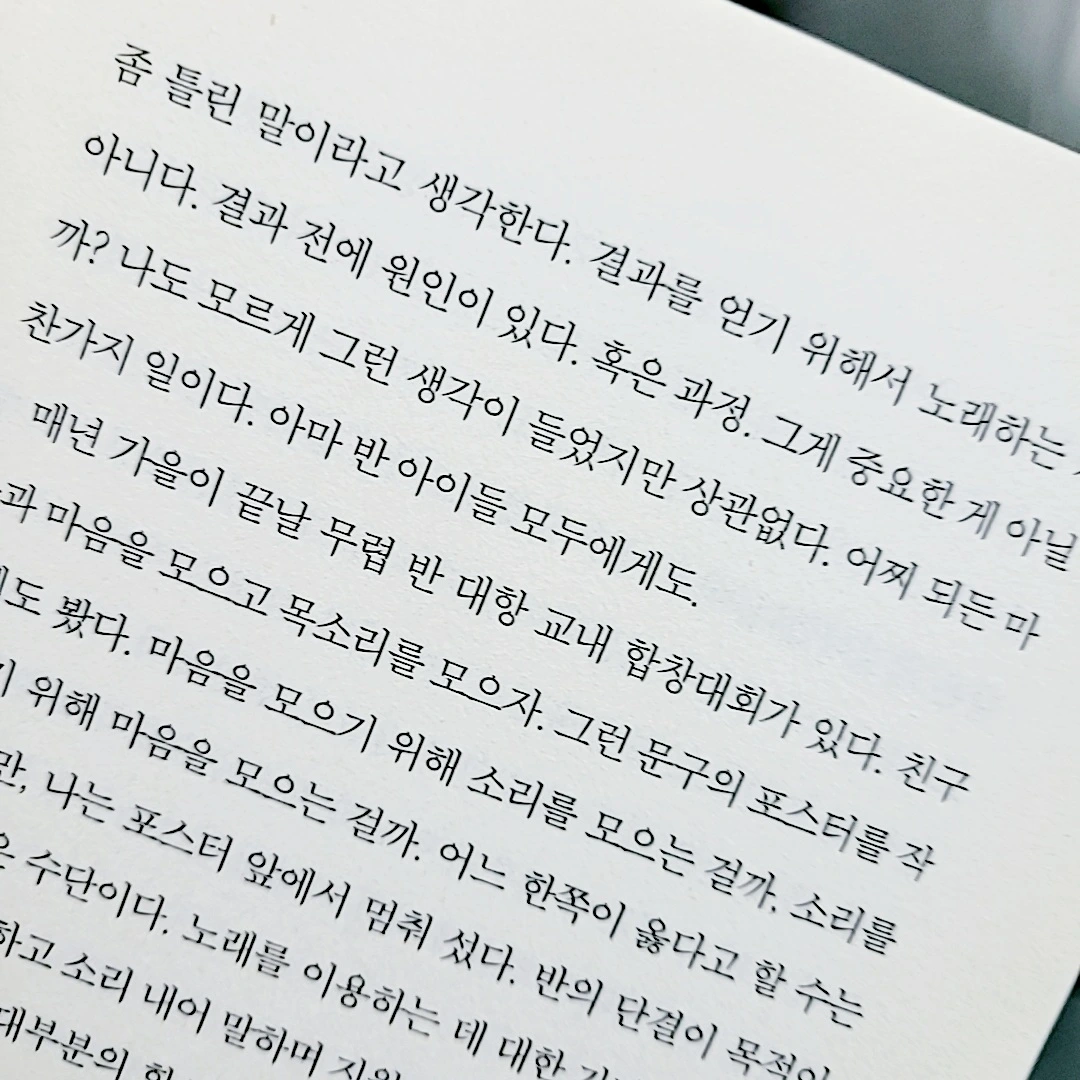 좀 틀린 말이라고 생각한다. 결과를 얻기 위해서 노래하는
아니다. 결과 전에 원인이 있다. 혹은 과정. 그게 중요한 게 아닐
까? 나도 모르게 그런 생각이 들었지만 상관없다. 어찌 되든 마
찬가지 일이다. 아마 반 아이들 모두에게도.
매년 가을이 끝날 무렵 반 대항 교내 합창대회가 있다. 친구
과 마음을 모으고 목소리를 모으자. 그런 문구의 포스터를 작
도 봤다. 마음을 모으기 위해 소리를 모으는 걸까, 소리를
기 위해 마음을 모으는 걸까. 어느 한쪽이 옳다고 할 수는
만, 나는 포스터 앞에서 멈춰 섰다. 반의 단결이 목적이
은 수단이다. 노래를 이용하는 데 대한
하고 소리 내어 말하며
대부분의